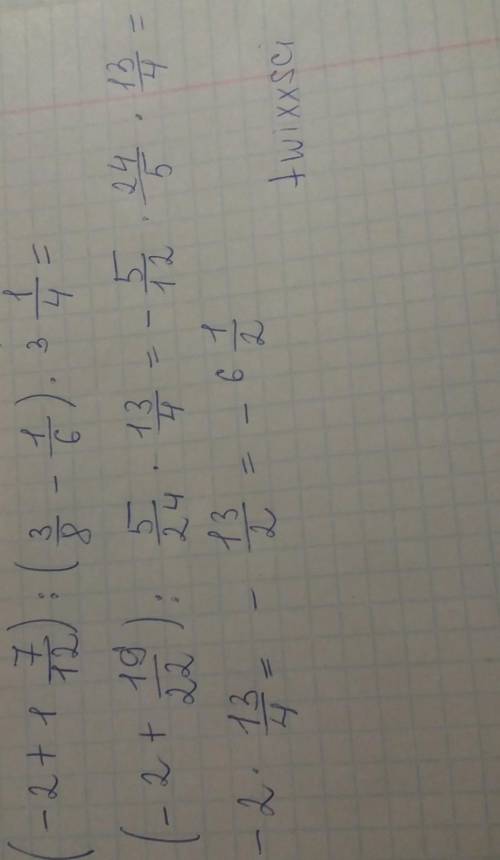 (-2 + 1 7/12) : (3/8 - 1/6) · 3 1/4 =
(-2 + 19/22) : 5/24 · 13/4 = - 5/12 · 24/5 · 13/4 =
-2 · 13/4 = - 13/2 = - 6 1/2
twixxsci